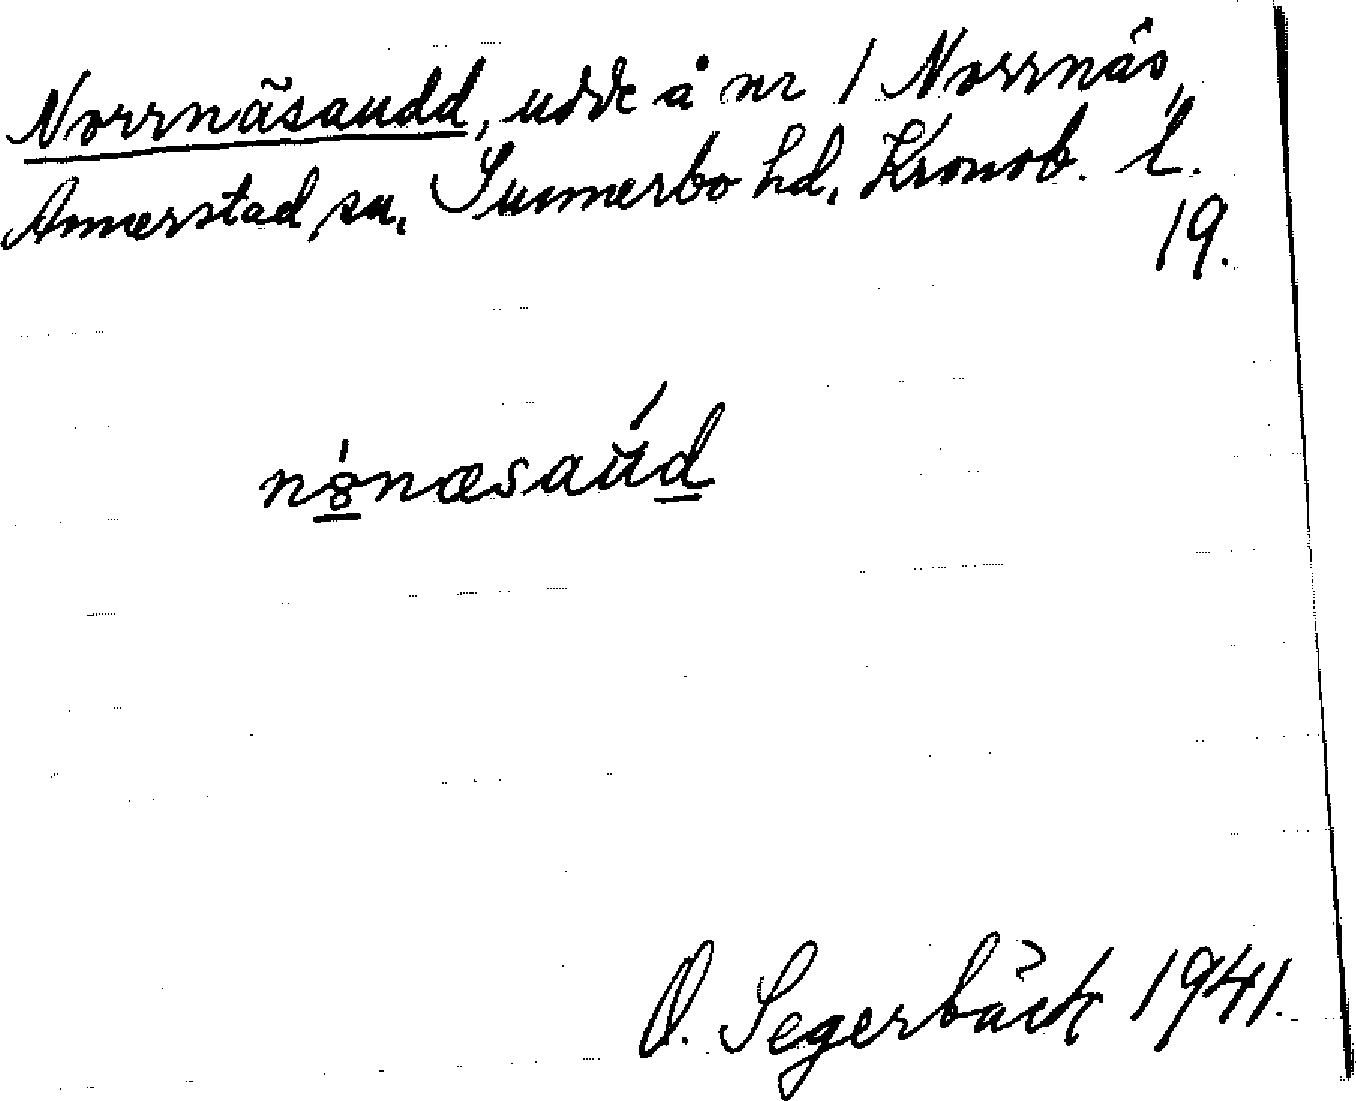 Norrnäsaudd, udde å nr 1 Norrnäs,
Annerstad sn, Sunnerbo hd, Kronob. l.
19.
O. Segerbäck 1941.